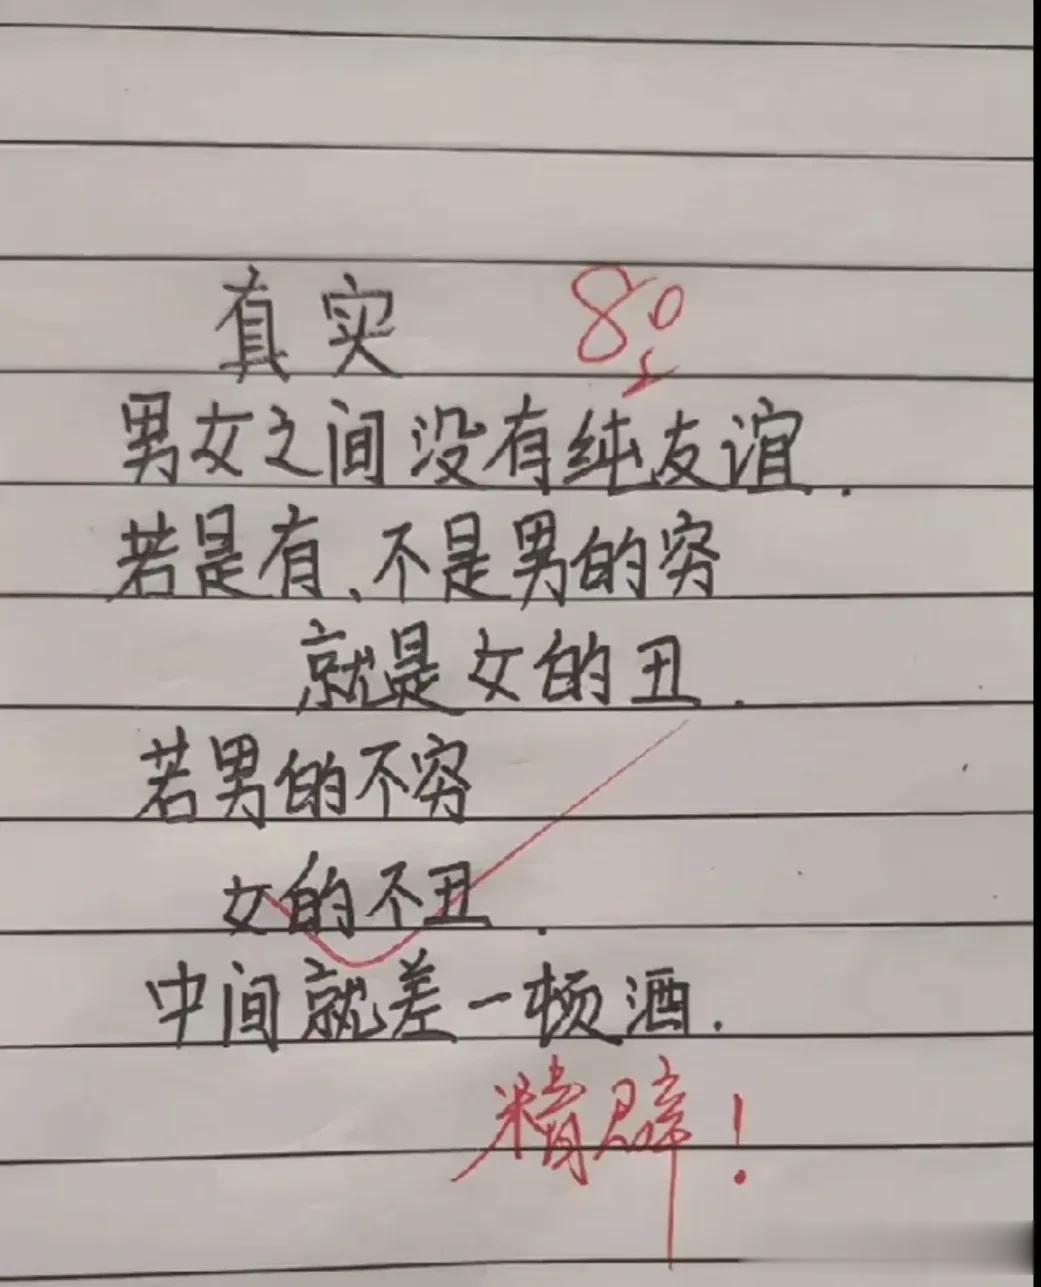 真实 80
男女之间没有纯友谊.
若是有、不是男的穷
就是女的丑.
若男的不穷
女的不丑.
中间就差一顿酒.
精辟!